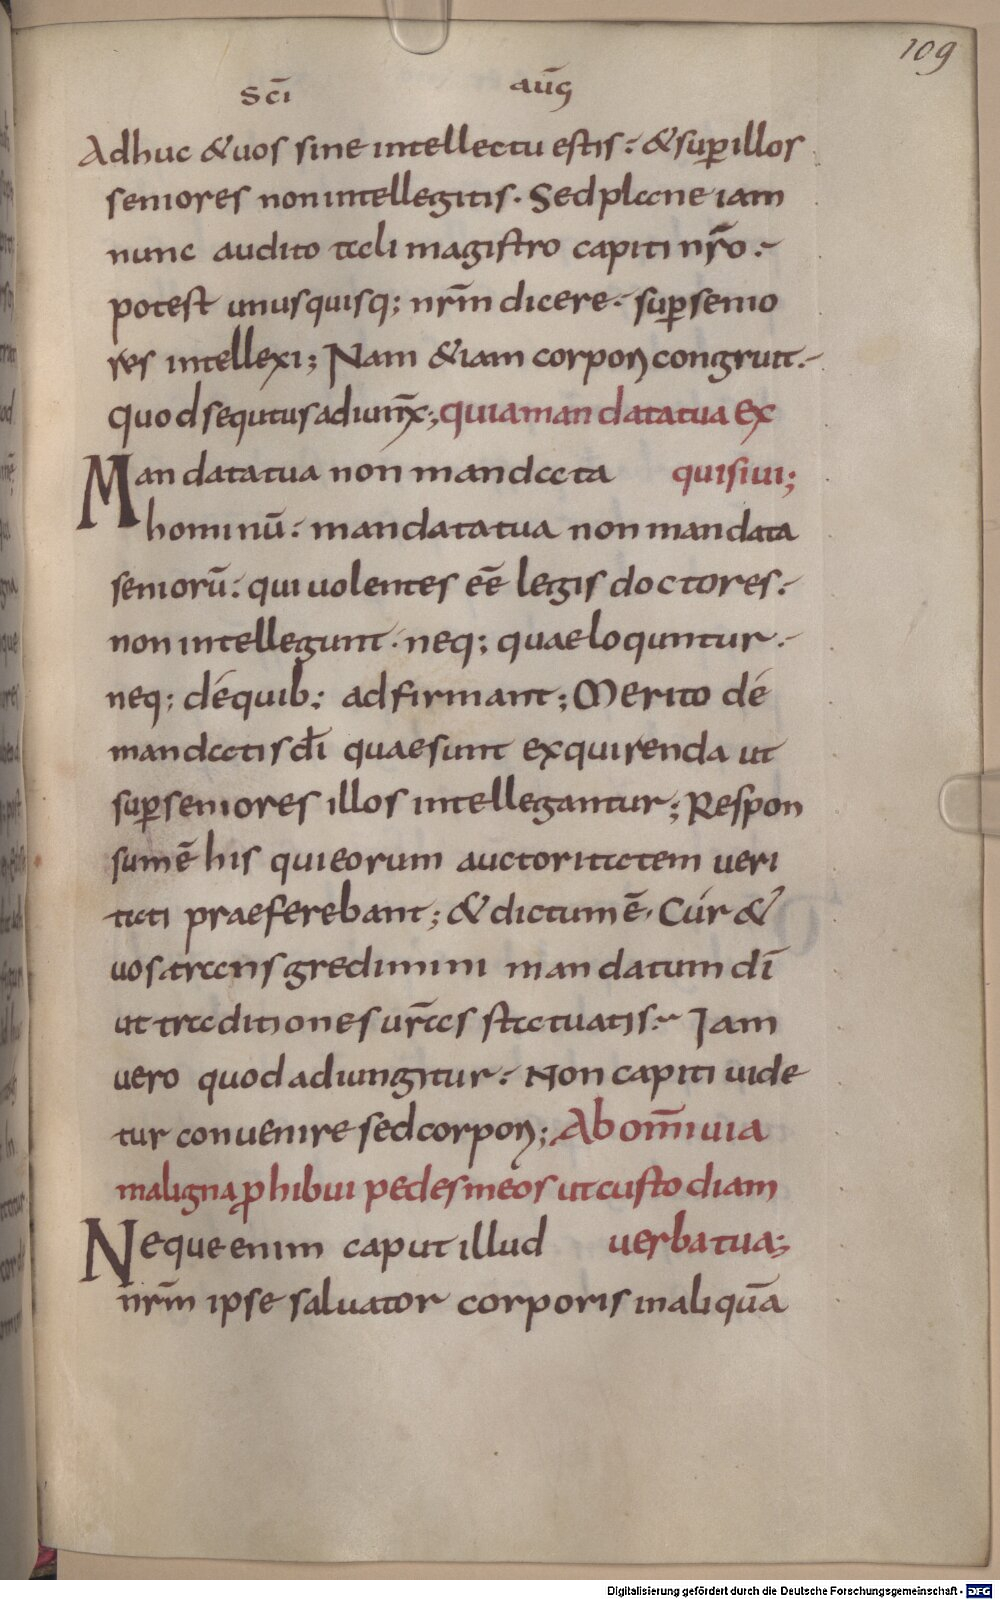 109
sc̄i aūg
Adhuc & uos sine intellectu estis: & sup̱ illos
seniores non intellegitis. Sed plane iam
nunc audito tali magistro capiti nr̄o:
potest unusquisq; nr̄m dicere. sup̱ senio
res intellexi; Nam & iam corpoꝝ congruit.
quod sequtus adiunx̄; quia mandata tua ex
Mandata tua non mandata quisiui;
hominū: mandata tua non mandata
seniorū: qui uolentes eē legis doctores:
non intellegunt. neq; quae loquntur.
neq; dé quib; adfirmant; Merito dé
mandatis dī quae sunt exquirenda ut
sup̱ seniores illos intellegantur; Respon
sum ē his qui eorum auctoritatem ueri
tati praeferebant; & dictum ē. Cúr &
uos transgredimini mandatum dī
ut traditiones ur̄as statuatis: Iam
uero quod adiungitur: Non capiti uide
tur conuenire sed corpoꝝ; Ab om̄i uia
maligna ꝓhibui pedes meos ut custodiam
Neque enim caput illud uerba tua;
nr̄m ipse saluator corporis in aliquā
Digitalisierung gefördert durch die Deutsche Forschungsgemeinschaft - DFG